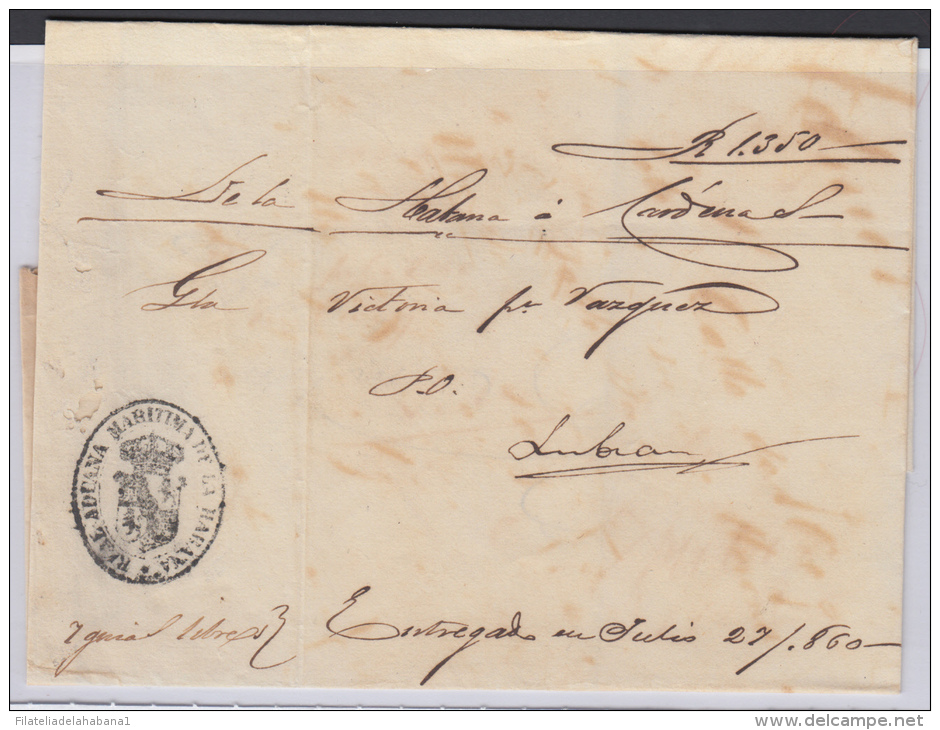 R 1.350
De la Habana á Cárdenas
Gta Victoria pn Vazquez
P.O.
REAL ADUANA MARITIMA DE LA HABANA
7 guias libres
Entregado en Julio 27/.860
Filateliadelahabana1
www.delcampe.net